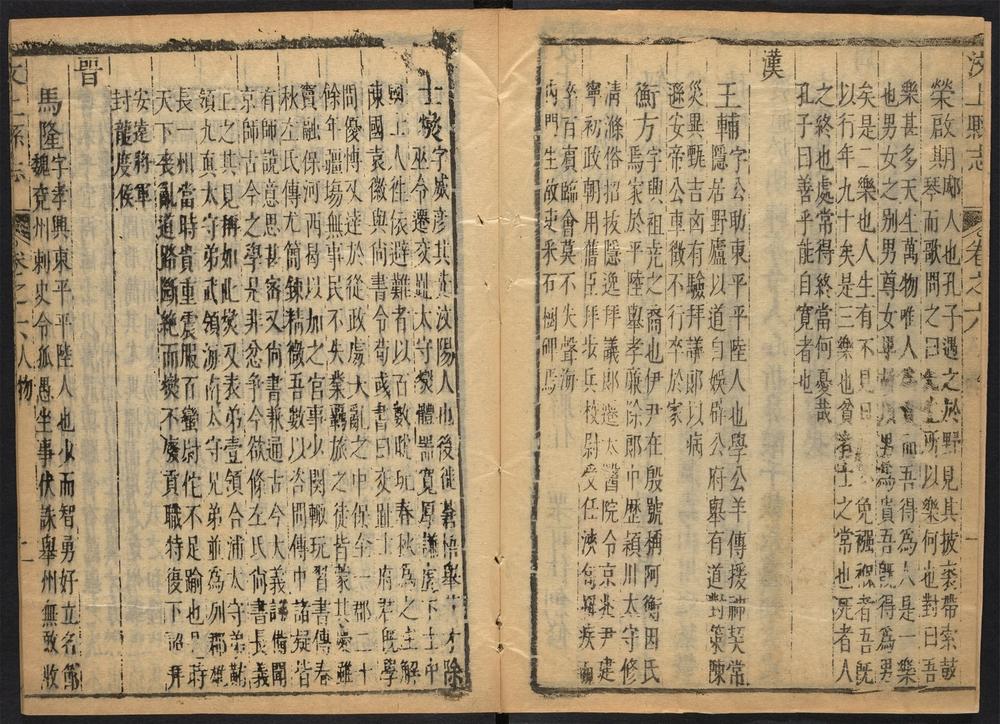 汶上縣志
卷之六
榮啟期郕人也孔子遇之於野見其披裘帶索鼓
琴而歌問之曰先生所以樂何也對曰吾
樂甚多天生萬物唯人為貴而吾得為人是一樂
也男女之別男尊女卑以男為貴吾旣得為男
矣是二樂也人生有不見日月不免襁褓者吾旣
以行年九十矣是三樂也貧者士之常也死者人
之終也處常得終當何憂哉
孔子曰善乎能自寬者也
漢
王輔字公助東平平陸人也學公羊傳援神契常
隱居野廬以道自娛辟公府舉有道對策陳
災異甄吉凶有驗拜議郎以病
遜安帝公車徵不行卒於家
衡方字興祖堯之裔也伊尹在殷號稱阿衡因氏
焉家於平陸舉孝廉除郎中歷潁川太守修
清滌俗招拔隱逸拜議郎遷太醫院令京兆尹建
寧初政朝用舊臣拜步兵校尉受任浹旬嬰疾
卒百寮臨會莫不失聲海
內門生故吏采石樹碑焉
士燮字威彥其先汶陽人也後徙蒼梧舉茂才除
巫令遷交趾太守燮體器寬厚謙虛下士中
國士人往依避難者以百數耽玩春秋為之註解
東國袁徽與尚書令荀彧書曰交趾士府君旣學
問優博又達於從政處大亂之中保全一郡二十
餘年疆場無事民不失業羇旅之徒皆蒙其慶雖
竇融保河西曷以加之官事少闋輒玩習書傳春
秋左氏傳尤簡練精微吾數以咨問傳中諸疑皆
有師說意思甚密又尚書兼通古今大義詳備聞
京師古今之學是非忿爭今欲條左氏尚書長義
上之其見稱如此燮又表弟壹領合浦太守弟䵋
領九真太守弟武領海南太守兄弟並為列郡雄
長一州當時貴重震服百蠻尉佗不足踰也是時
天下喪亂道路斷絕而燮不廢貢職特復下詔拜
安遠將軍
封龍度侯
晉
馬隆字孝興東平平陸人也少而智勇好立名節
魏兗州刺史令孤愚坐事伏誅舉州無敢收
汶上縣志
卷之六 人物
二